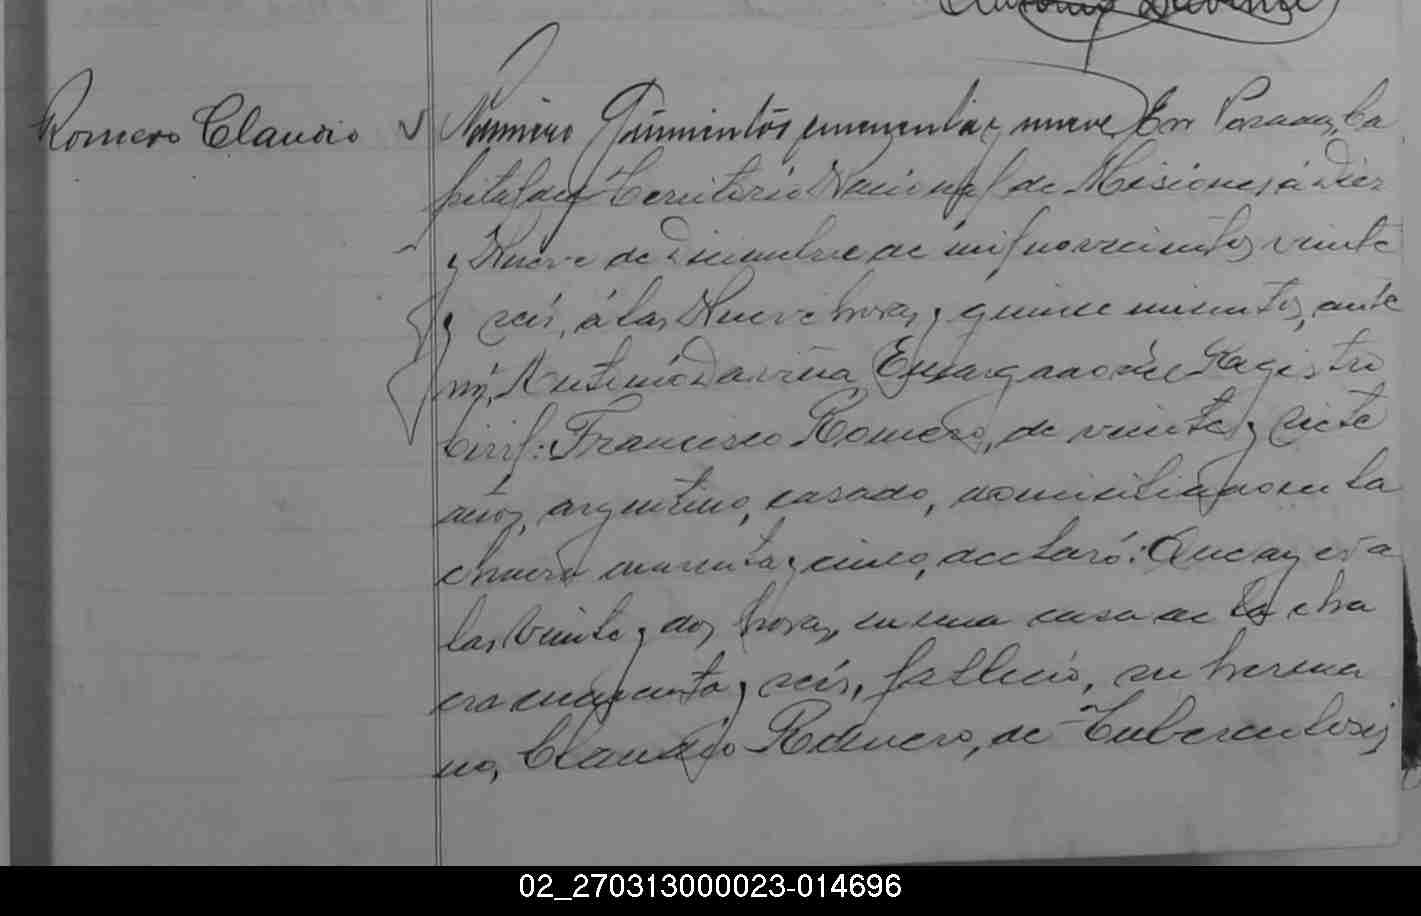 Antonio Daviña
Romero Claudio
Número Quinientos cincuenta y nueve En Posadas, Ca
pital del Territorio Nacional de Misiones, á Diez
y Nueve de Diciembre de mil novecientos veinte
y seis, á las Nueve horas y quince minutos, ante
mí, Antonio Daviña, Encargado del Registro
Civil: Francisco Romero, de veinte y siete
años, argentino, casado, domiciliado en la
chacra cuarenta y cinco, declaró: Que ayer a
las veinte y dos horas, en una casa de la cha
cra cuarenta y seis, falleció, su herma
no, Claudio Romero, de Tuberculosis
02_270313000023-014696